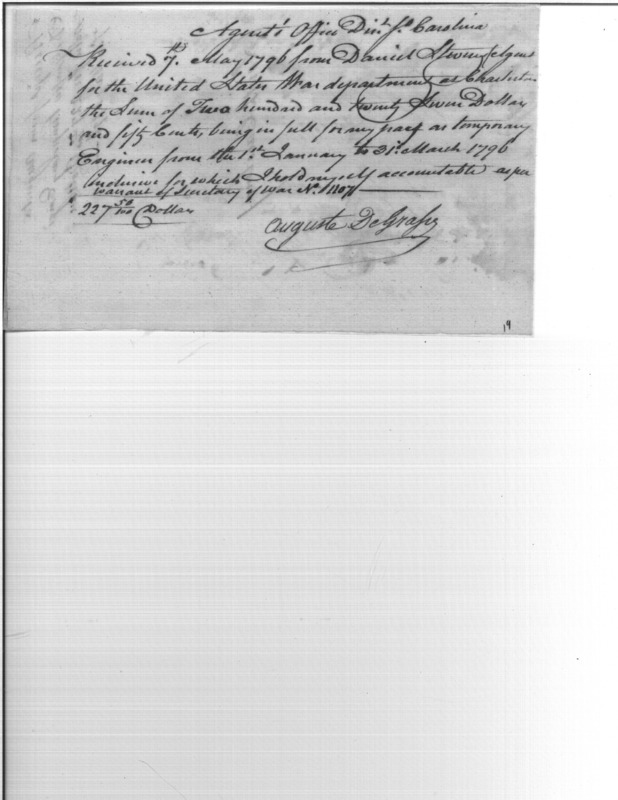 Agent's Office Dist. So. Carolina
Received 7th. May 1796 from Daniel Stevens Agent
for the United States War department at Charleston
the Sum of Two hundred and twenty Seven Dollars
and fifty Cents, being in full for my pay as temporary
Engineer from the 1st January to 31st March 1796
inclusive for which I hold myself accountable as per
warrant of Secretary of War No. 1107
227 50/100 Dollars
Auguste DeGrasse
19